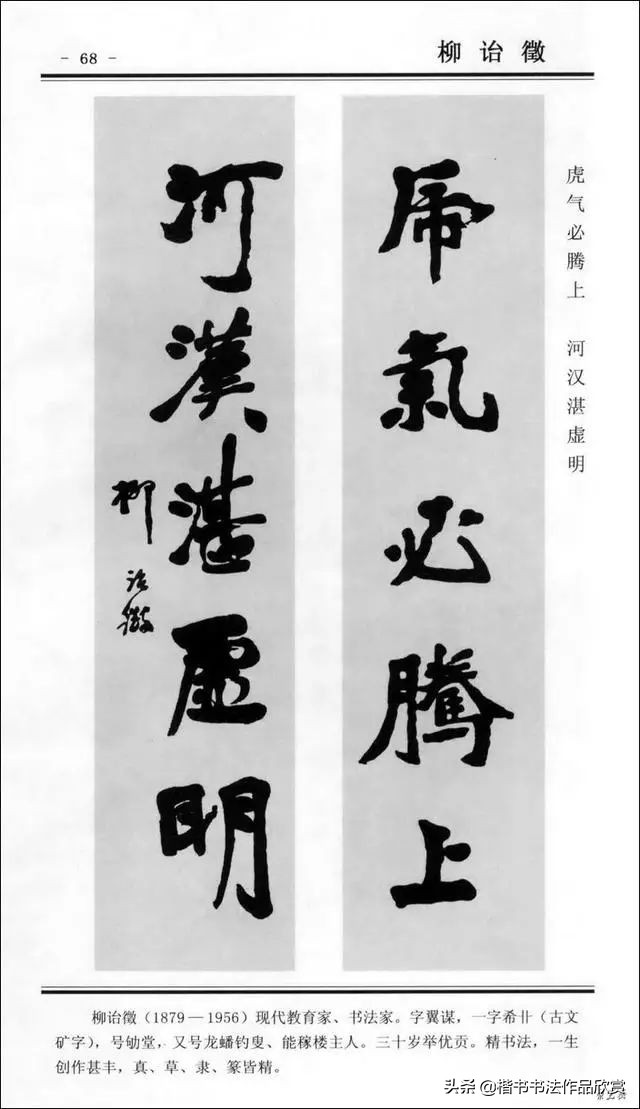 - 68 -
柳诒徵
虎气必腾上 河汉湛虚明
虎氣必騰上
河漢湛虛明
柳詒徵
柳诒徵（1879—1956）现代教育家、书法家。字翼谋，一字希卝（古文
矿字），号劬堂，又号龙蟠钓叟、能稼楼主人。三十岁举优贡。精书法，一生
创作甚丰，真、草、隶、篆皆精。
头条@楷书书法作品欣赏